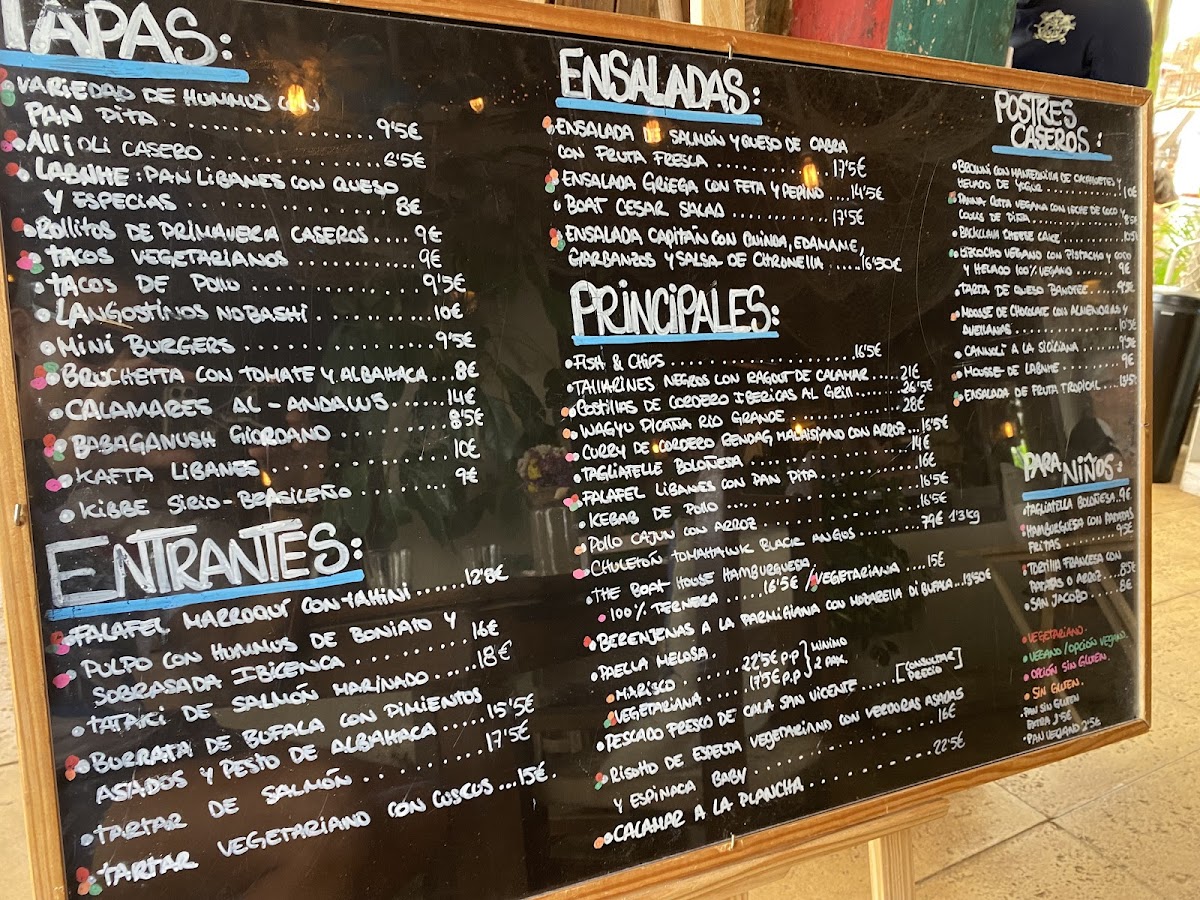 TAPAS:
VARIEDAD DE HUMMUS CON
PAN PITA .................. 9'5€
Alli OLI CASERO .................. 6'5€
LABNHE: PAN LIBANES CON QUESO
Y ESPECIAS .................. 8€
Rollitos DE PRIMAVERA CASEROS .... 9€
TACOS VEGETARIANOS .......... 9€
TACOS DE POLLO .......... 9'5€
LANGOSTINOS NOBASHI .......... 10€
MINI BURGERS .................. 9'5€
BRUCHETTA CON TOMATE Y ALBAHACA ... 8€
CALAMARES AL-ANDALUS ...... 14€
BABAGANUSH GIORDANO .......... 8'5€
KAFTA LIBANES .................. 10€
KIBBE SIRIO-BRASILEÑO .......... 9€
ENTRANTES:
FALAFEL MARROQUÍ CON TAHINI ..... 12'8€
PULPO CON HUMMUS DE BONIATO Y
SOBRASADA IBICENCA .......... 16€
TATAKI DE SALMÓN MARINADO ...... 18€
BURRATA DE BUFALA CON PIMIENTOS
ASADOS Y PESTO DE ALBAHACA ..... 15'5€
TARTAR DE SALMÓN .......... 17'5€
TARTAR VEGETARIANO CON CUSCUS ... 15€.
ENSALADAS:
ENSALADA DE SALMÓN Y QUESO DE CABRA
CON FRUTA FRESCA .......... 17'5€
ENSALADA GRIEGA CON FETA Y PEPINO .... 14'5€
BOAT CESAR SALAD .......... 17'5€
ENSALADA CAPITÁN CON QUINOA, EDAMAME,
GARBANZOS Y SALSA DE CITRONELLA ..... 16'50€
PRINCIPALES:
FISH & CHIPS .................. 16'5€
TALLARINES NEGROS CON RAGOUT DE CALAMAR ..... 21€
COSTILLAS DE CORDERO IBERICAS AL GRILL ... 26'5€
WAGYU PICAÑA RIO GRANDE .......... 28€
CURRY DE CORDERO BENDAG MALAISIANO CON ARROZ ... 16'5€
TAGLIATELLE BOLOÑESA .................. 14€
FALAFEL LIBANES CON PAN PITA .......... 16€
KEBAB DE POLLO .................. 16'5€
POLLO CAJUN CON ARROZ .......... 16'5€
CHULETÓN TOMAHAWK BLACK ANGUS ...... 79€ 1'3 Kg
THE BOAT HOUSE HAMBURGUESA
100% TERNERA ...... 16'5€ / VEGETARIANA .... 15€
BERENJENAS A LA PARMIGIANA CON MOZARELLA DI BUFALA .. 18'50€
PAELLA MELOSA
MARISCO ...... 22'5€ P.P } MINIMO
VEGETARIANA ...... 17'5€ P.P } 2 PAX.
PESCADO FRESCO DE CALA SAN VICENTE ..... [CONSULTAR PRECIO]
RISOTTO DE ESPELTA VEGETARIANO CON VERDURAS ASADAS
Y ESPINACA BABY .................. 16€
CALAMAR A LA PLANCHA .......... 22'5€
POSTRES
CASEROS:
BROWNI CON MANTEQUILLA DE CACAHUETES Y
HELADO DE YOGUR .......... 10€
PANNA COTTA VEGANA CON LECHE DE COCO Y
COULIS DE PIÑA .......... 8'5€
BACKLAVA CHEESE CAKE .......... 10'5€
BIZCOCHO VEGANO CON PISTACHO Y COCO
Y HELADO 100% VEGANO ...... 9€
TARTA DE QUESO BANOFEE ...... 9'5€
MOUSSE DE CHOCOLATE CON ALMENDRAS Y
AVELLANAS .......... 10'5€
CANNOLI A LA SICILIANA ...... 9'5€
MOUSSE DE LABNHE ...... 9€
ENSALADA DE FRUTA TROPICAL .... 13'5€
PARA NIÑOS:
TAGLIATELLA BOLOÑESA. 9€
HAMBURGUESA CON PATATAS
FRITAS .......... 9'5€
TORTILLA FRANCESA CON
PATATAS O ARROZ .. 8'5€
SAN JACOBO ...... 8€
VEGETARIANO.
VEGANO/OPCIÓN VEGANO.
OPCIÓN SIN GLUTEN.
SIN GLUTEN.
PAN SIN GLUTEN
EXTRA 2'5€
PAN VEGANO 2'5€